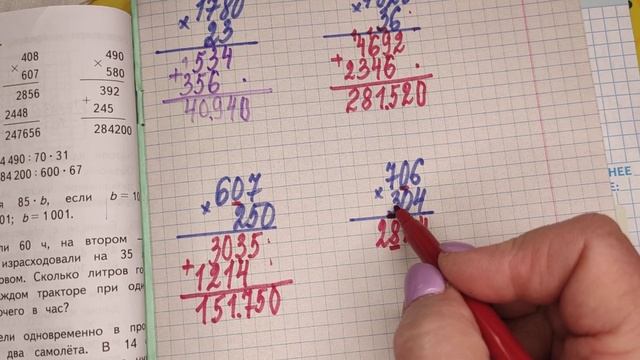 408
× 607
2856
2448
247656
490
× 580
392
+ 245
284200
4 490 : 70 · 31
84 200 : 600 · 67
85 · b, если b = 10
01; b = 1 001.
60 ч, на втором –
израсходовали на 35
Сколько литров
тракторе при
в час?
одновременно в
два самолёта. В 14
× 1780
23
534
+ 356
40.940
36
4692
+ 2346
281.520
607
× 250
3035
+ 1214
151.750
706
× 304
28
НЕЕ